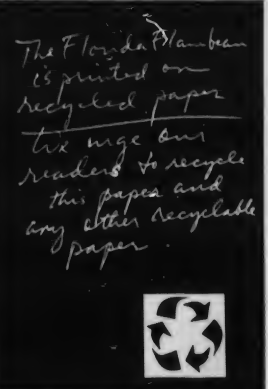 The Florida Flambeau
is printed on
recycled paper
We urge our
readers to recycle
this paper and
any other recyclable
paper.